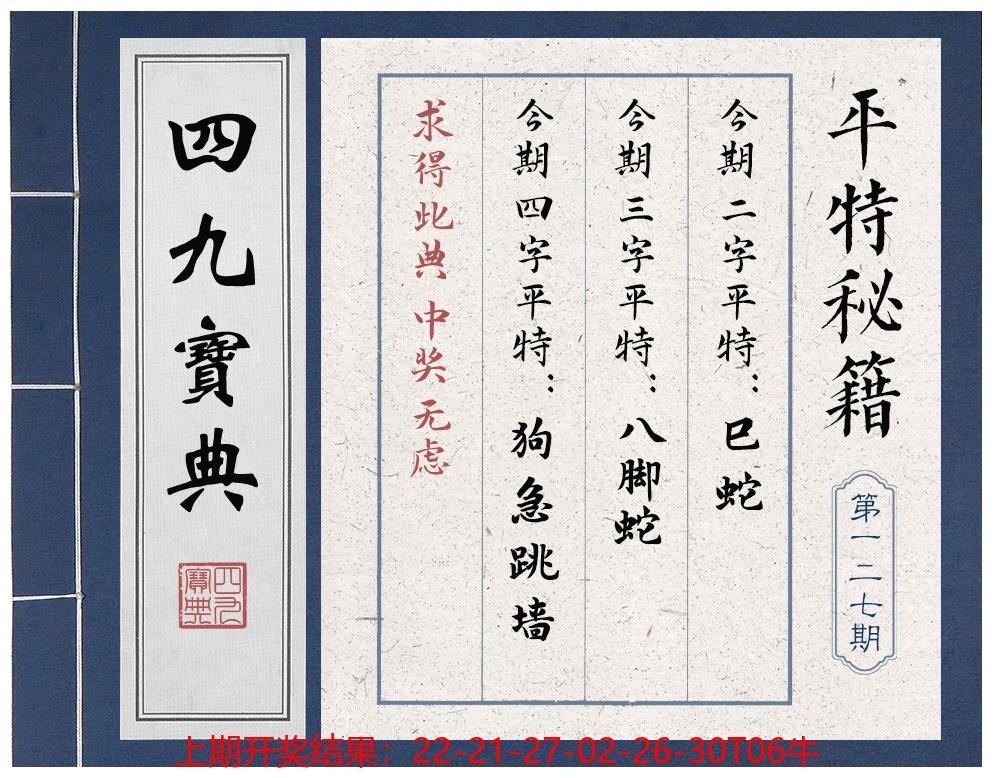 平特秘籍
第一二七期
今期二字平特：巳蛇
今期三字平特：八脚蛇
今期四字平特：狗急跳墙
求得此典 中奖无虑
四九寶典
四九寶典
上期开奖结果：22-21-27-02-26-30T06牛